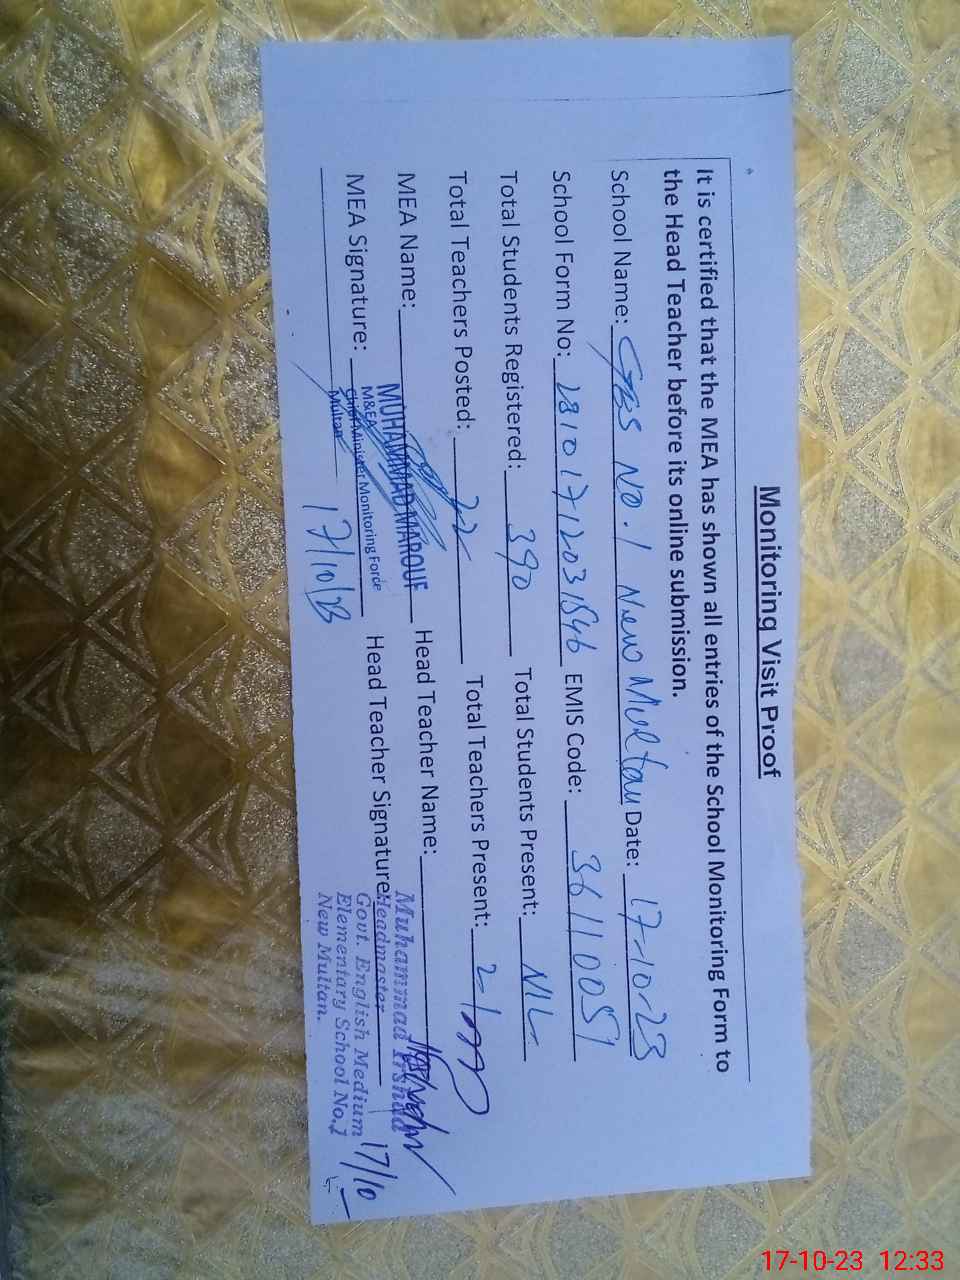 Monitoring Visit Proof
It is certified that the MEA has shown all entries of the School Monitoring Form to
the Head Teacher before its online submission.
School Name: GES NO.1 New Multan Date: 17-10-23
School Form No: 23101712031546 EMIS Code: 36110051
Total Students Registered: 390 Total Students Present: NIL
Total Teachers Posted: 22 Total Teachers Present: 21
MEA Name: MUHAMMAD MAROUF Head Teacher Name: Muhammad Irshad
M&EA
MEA Signature: Chief Minister Monitoring Force Head Teacher Signature: Headmaster
Multan
17/10/23
Govt. English Medium
Elementary School No.1
New Multan.
17/10
17-10-23 12:33